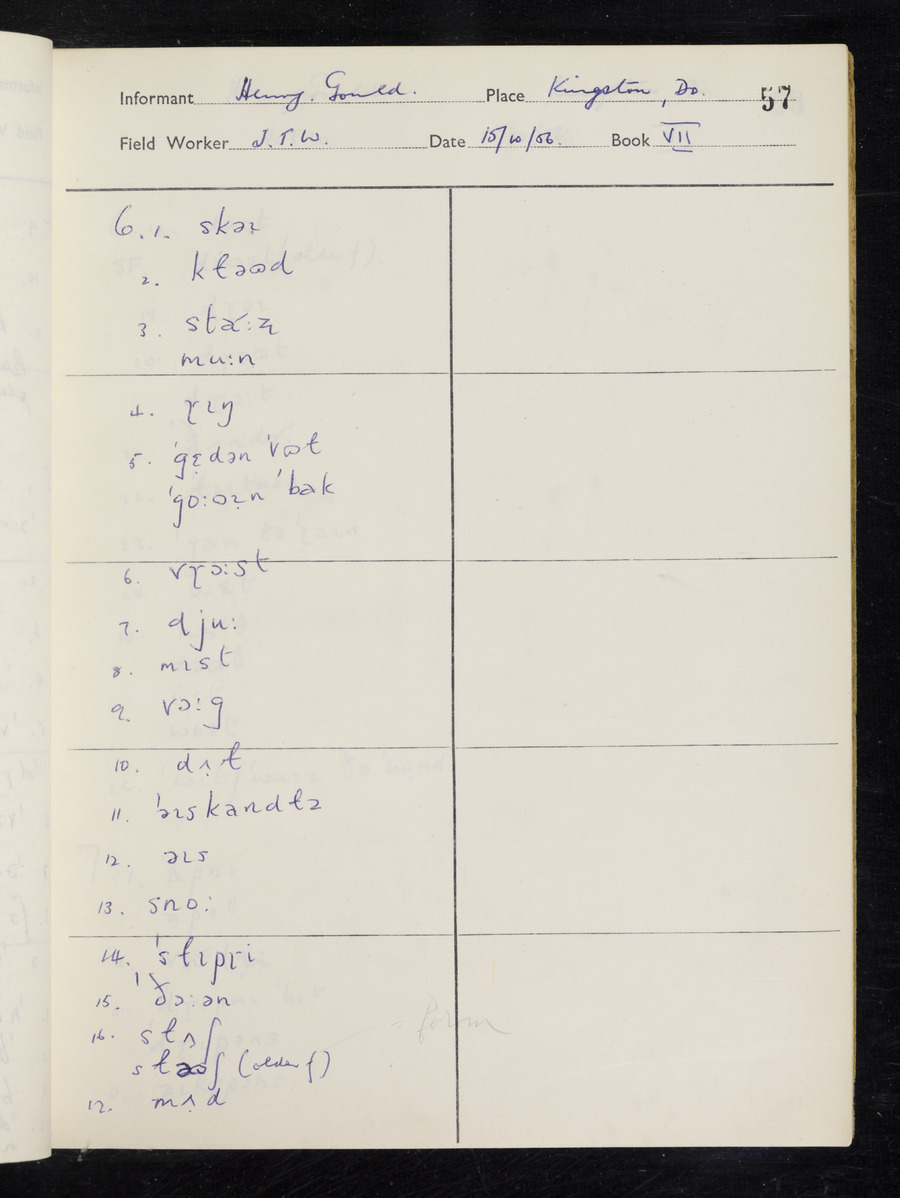 Informant Henry Gould. Place Kingston, Do. 57
Field Worker J.T.W. Date 15/10/56. Book VII
6.1. skəɪ
2. kɫəʊd
3. staːɻ
muːn
4. ɽɪŋ
5. ˈgɛ̣dən ˈvɒt
ˈgɒːəɪn ˈbak
6. vɽɔːst
7. djuː
8. mɪst
9. vɔːg
10. dʌ̣t
11. ˈəɪskandɫz
12. əɪs
13. snoː
14. ˈsɫɪpɽi
15. ˈðɔːən
16. sɫʌʃ
sɫəʊʃ (older f)
17. mʌ̣d
- form